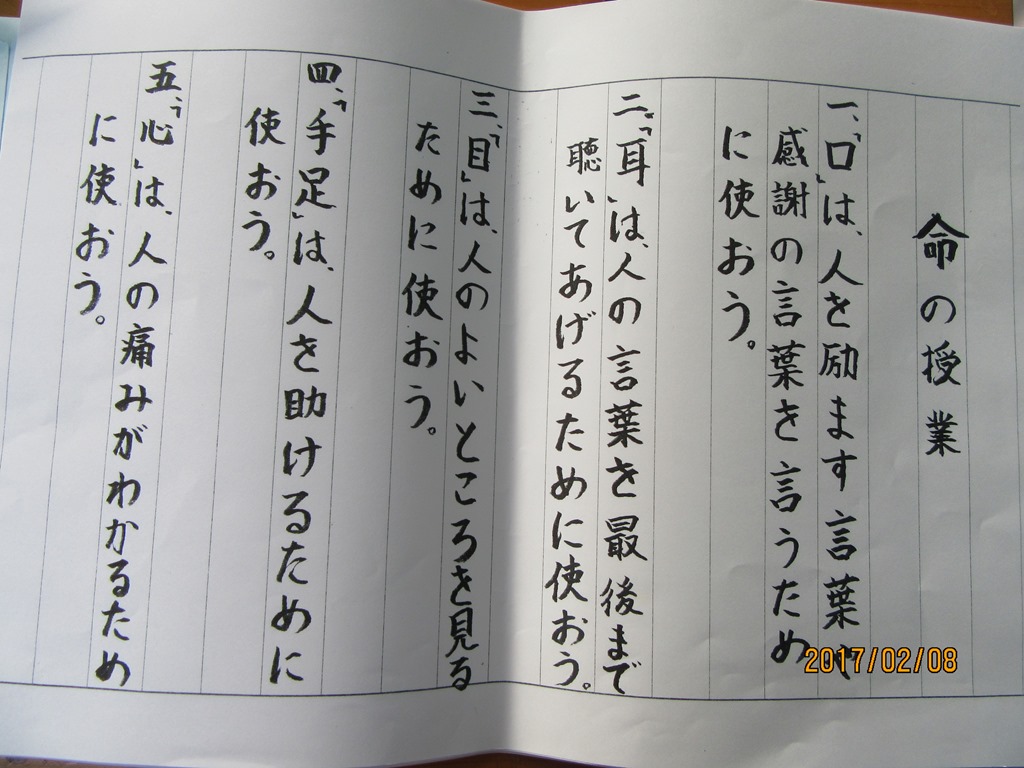 命の授業
一、「口」は、人を励ます言葉や
感謝の言葉を言うため
に使おう。
二、「耳」は、人の言葉を最後まで
聴いてあげるために使おう。
三、「目」は、人のよいところを見る
ために使おう。
四、「手足」は、人を助けるために
使おう。
五、「心」は、人の痛みがわかるため
に使おう。
2017/02/08